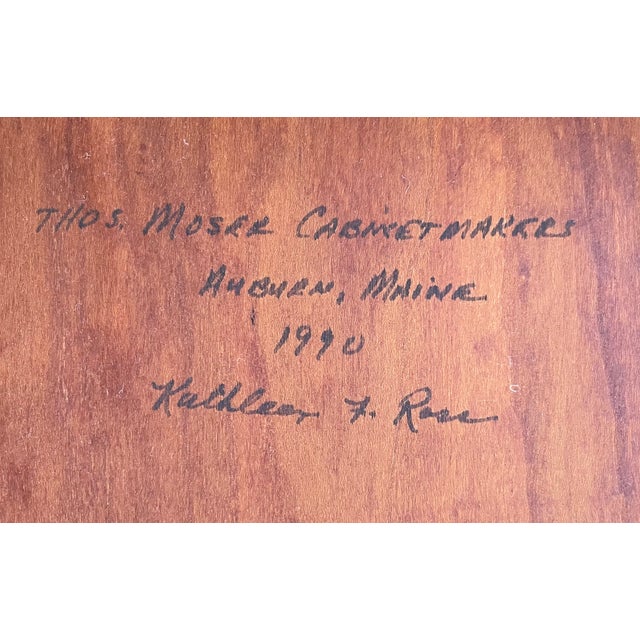 THOS. MOSER CABINETMAKERS
AUBURN, MAINE
1990
Kathleen F. Ross